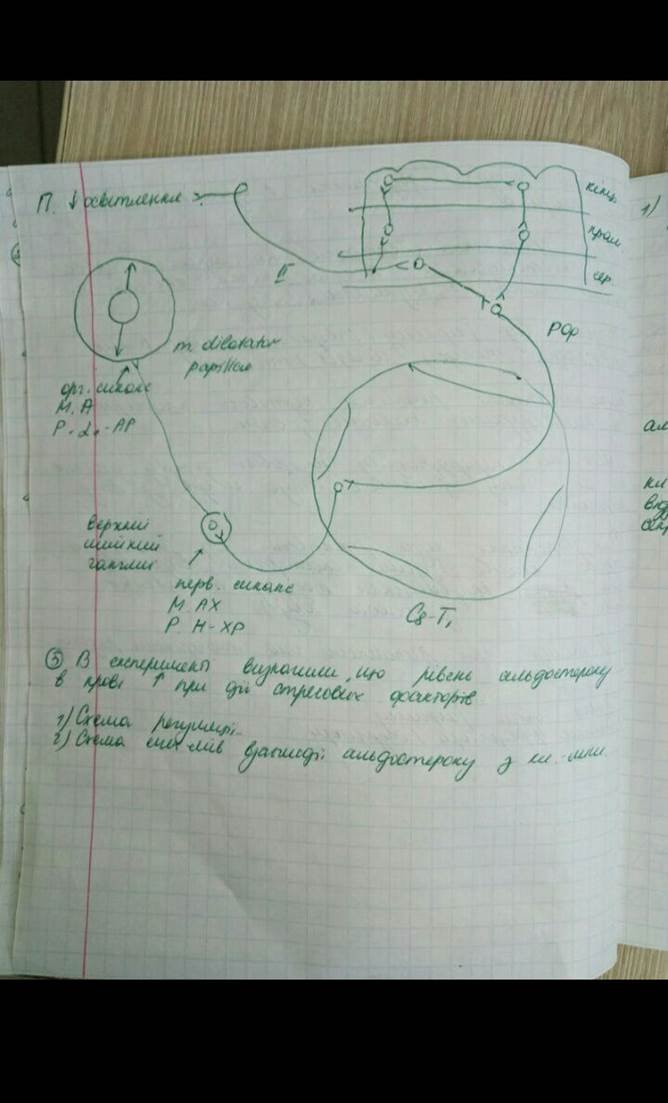 П. ↓ освітлення
кінц.
пром.
сер.
II
РФ
m. dilatator
papillae
орг. синапс
М. А
Р. α₁-АР
верхній
шийний
ганглій
нерв. синапс
М. АХ
Р. Н-ХР
C8-T1
③ В експерименті визначили, що рівень альдостерону
в крові ↑ при дії стресових факторів
1) Схема регуляції
2) Схема взаємодії альдостерону з кл.-міш.
1)